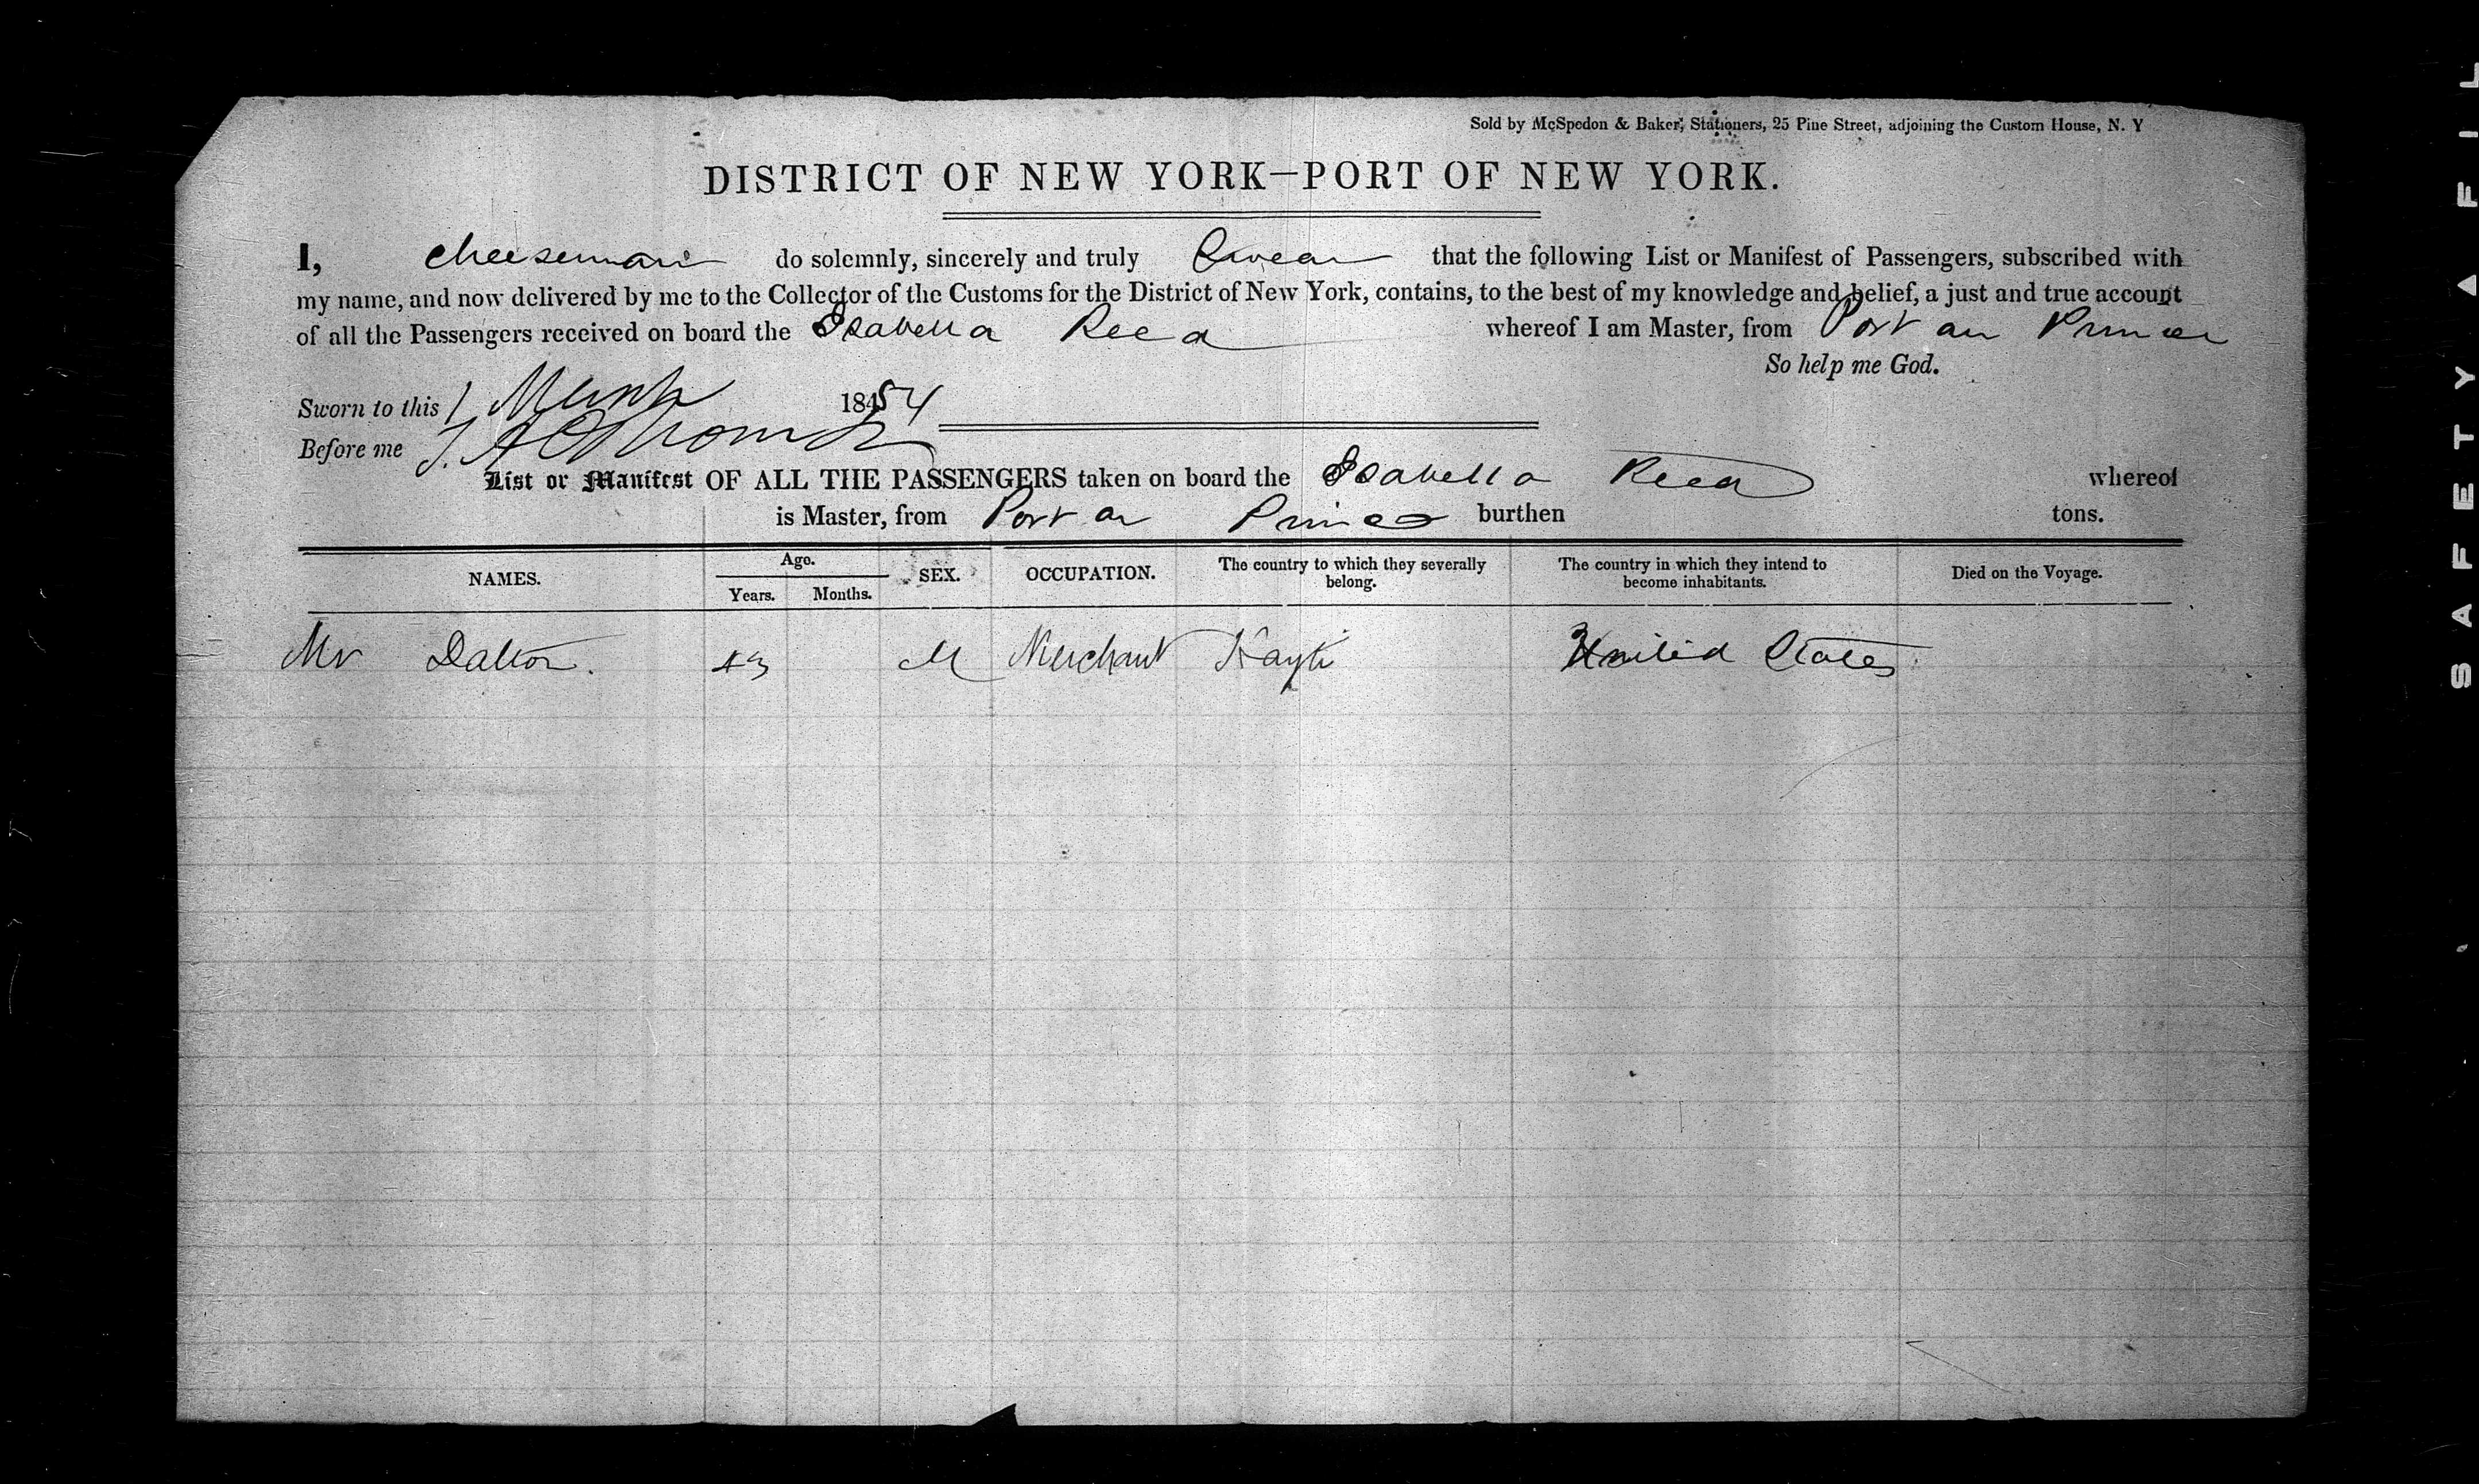 Sold by McSpedon & Baker, Stationers, 25 Pine Street, adjoining the Custom House, N. Y
DISTRICT OF NEW YORK—PORT OF NEW YORK.
I, Cheeseman do solemnly, sincerely and truly Swear that the following List or Manifest of Passengers, subscribed with
my name, and now delivered by me to the Collector of the Customs for the District of New York, contains, to the best of my knowledge and belief, a just and true account
of all the Passengers received on board the Isabella Reed whereof I am Master, from Port au Prince
So help me God.
Sworn to this 1 March 1854
Before me
List or Manifest OF ALL THE PASSENGERS taken on board the Isabella Reed whereof
is Master, from Port au Prince burthen tons.
NAMES. Age. Years. Months. SEX. OCCUPATION. The country to which they severally belong. The country in which they intend to become inhabitants. Died on the Voyage.
Mr Dalton. 43 M Merchant Hayti United States
SAFETY A FIL